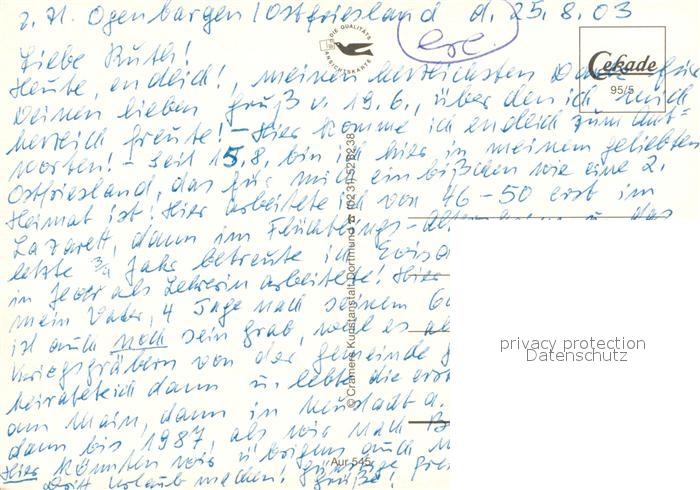 z. Zt. Ogenbargen / Ostfriesland d. 25.8.03
erl.
DIE QUALITÄTS ANSICHTSKARTE
Cekade
95/5
Liebe Ruth!
Heute, endlich!, meinen herzlichsten Dank für
Deinen lieben Gruß v. 19.6., über den ich mich
herzlich freute! – Hier komme ich endlich zum Ant=
worten! – Seit 15.8. bin ich hier in meinem geliebten
Ostfriesland, das für mich ein bißchen wie eine 2.
Heimat ist! Hier arbeitete ich von 46–50 erst im
Lazarett, dann im Flüchtlings- u. das
letzte 3/4 Jahr betreute ich
in Jever als Lehrerin arbeitete! Hier
mein Vater, 4 Tage nach seinem
ist auch noch sein Grab, weil es
Kriegsgräbern von der Gemeinde
heiratete ich dann u. lebte die
am Main, dann in Neustadt a.
dann bis 1987, als wir nach
Hier könnten wir übrigens auch
Urlaub machen! Grüße!
© Cramers Kunstanstalt Dortmund ☎ (0231) 528238
Aur 545
privacy protection
Datenschutz